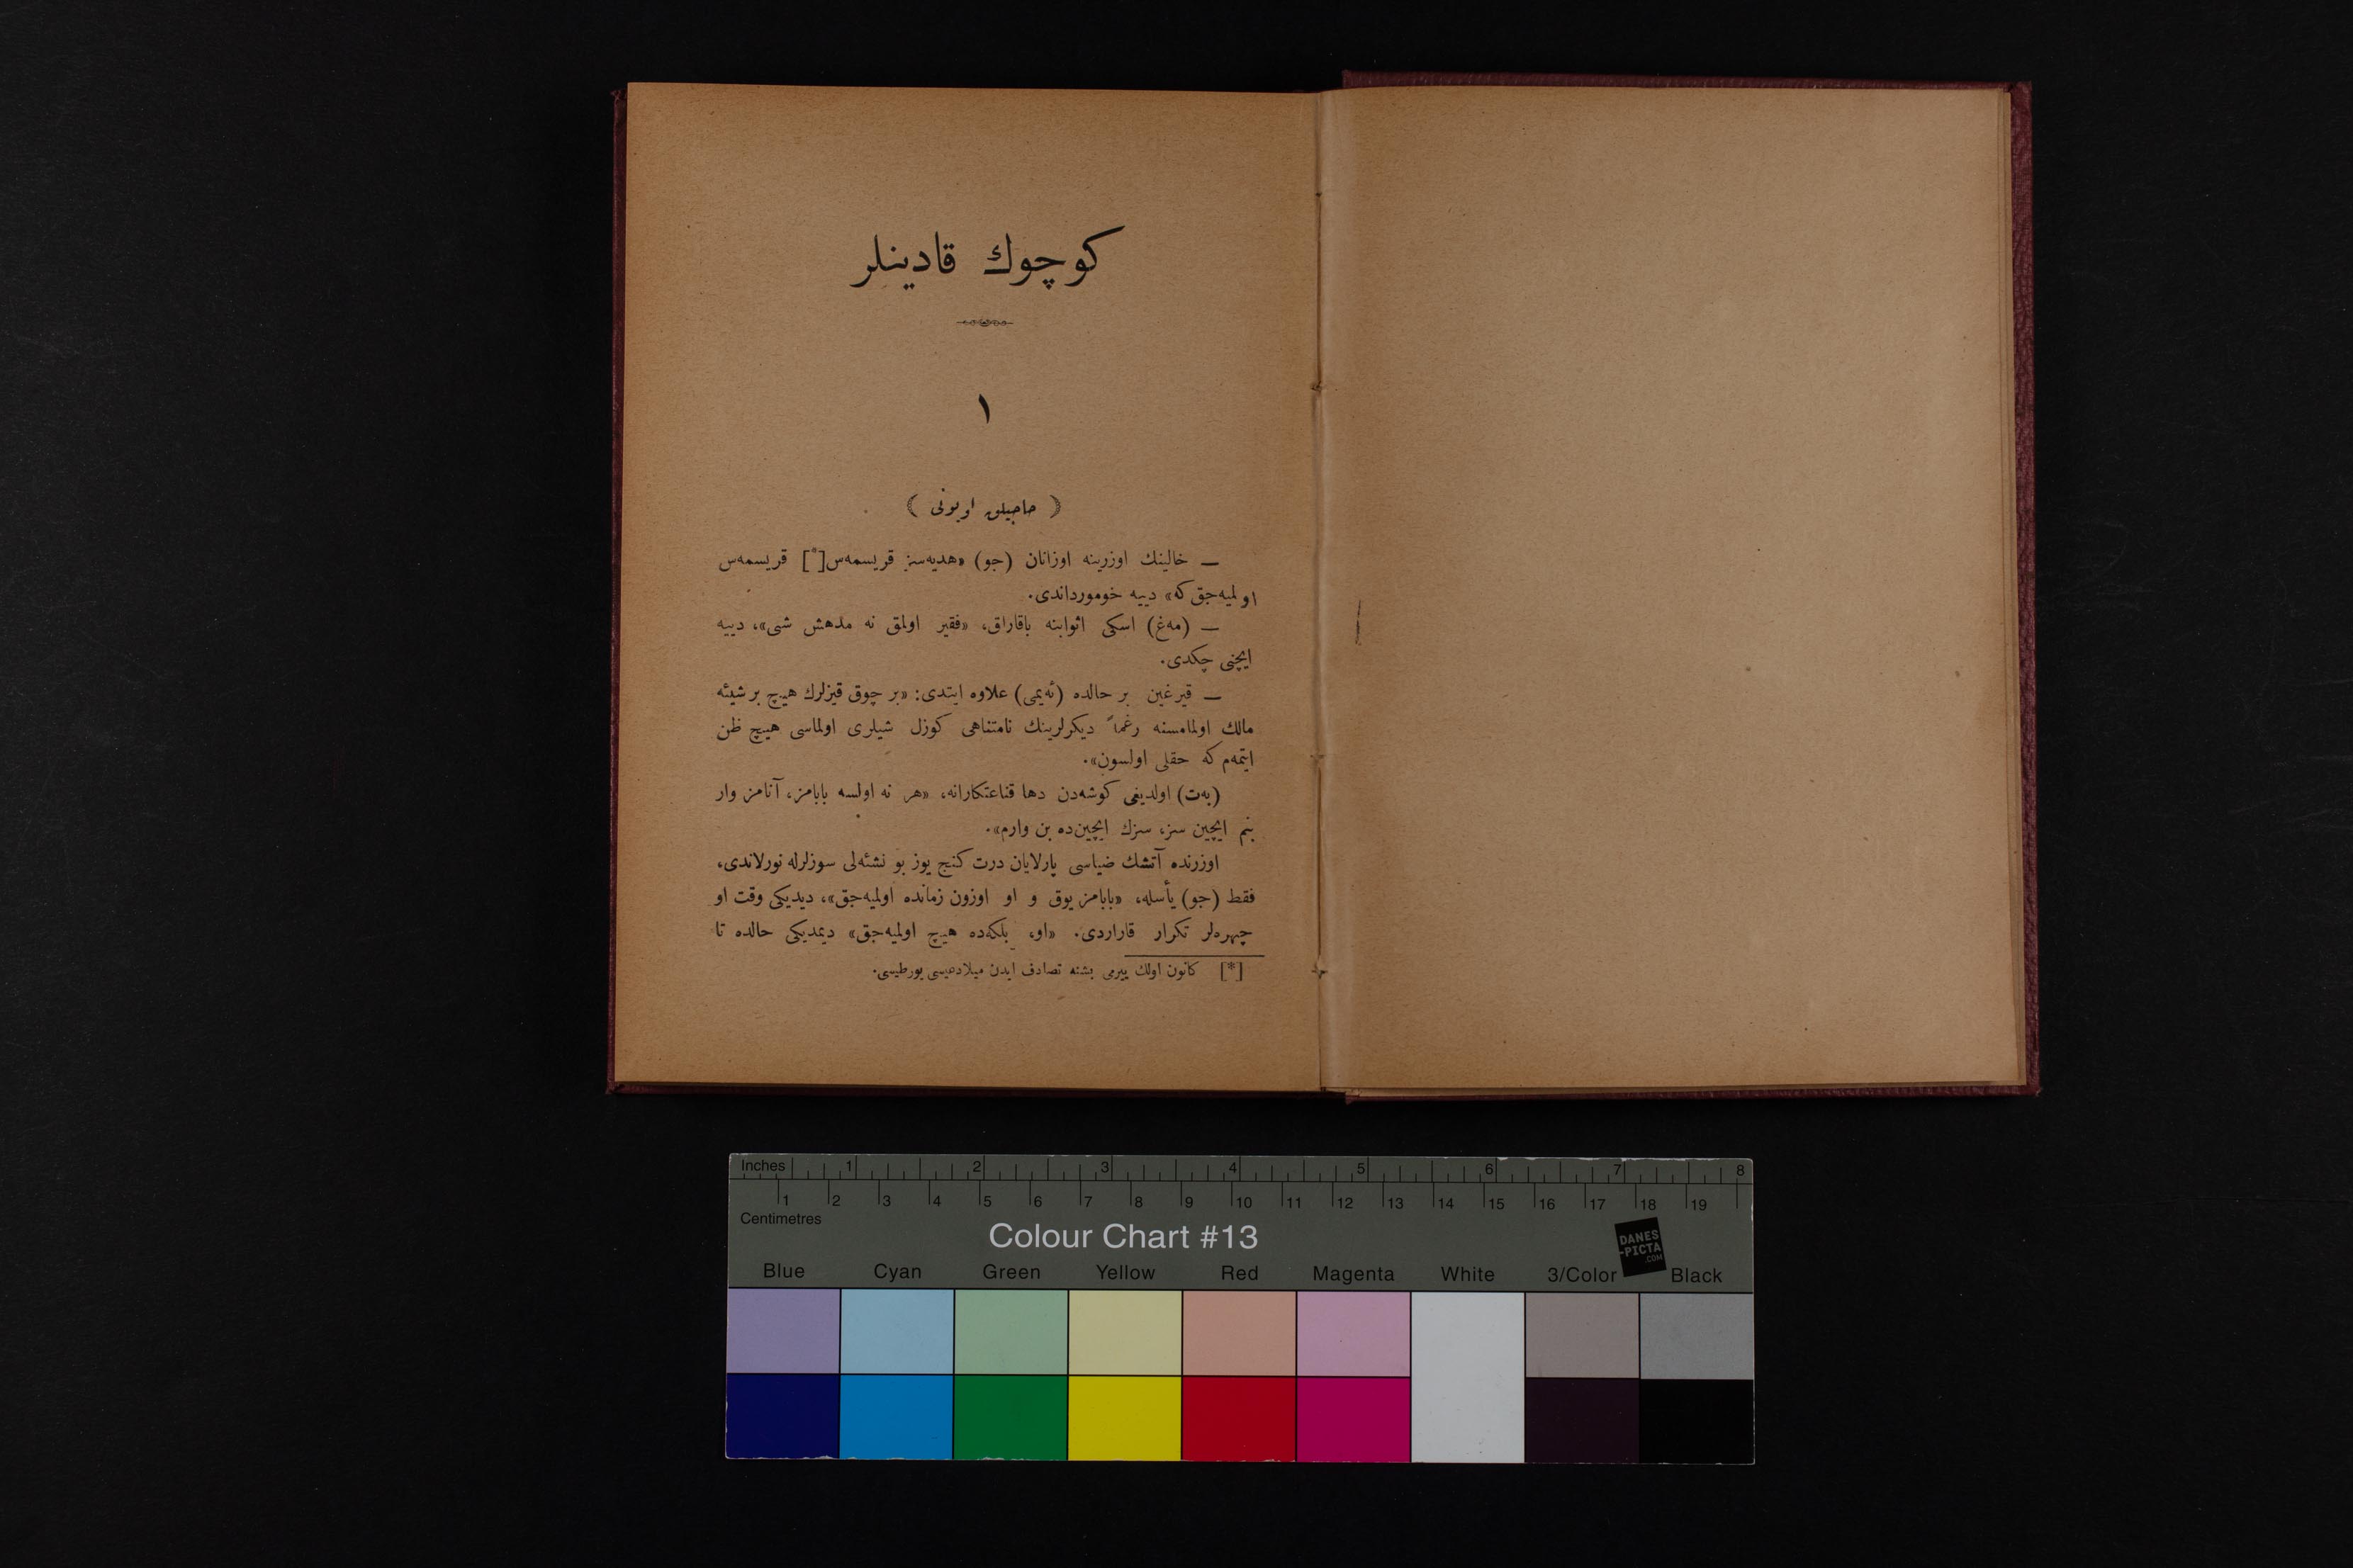 كوچوك قادينلر
١
( حاجيلق اويونى )
— خالينك اوزرينه اوزانان (جو) «هديه‌سز قريسمه‌س[*] قريسمه‌س
اولميه‌جق كه» دييه خومورداندى.
— (مه‌غ) اسكى اثوابنه باقاراق، «فقير اولمق نه مدهش شى»، دييه
ايچنى چكدى.
— قيرغين بر حالده (ئه‌يمى) علاوه ايتدى: «بر چوق قيزلرك هيچ بر شيئه
مالك اولمامسنه رغماً ديكرلرينك نامتناهى كوزل شيلرى اولماسى هيچ ظن
ايتمه‌م كه حقلى اولسون».
(به‌ت) اولديغى كوشه‌دن دها قناعتكارانه، «هر نه اولسه بابامز، آنامز وار
بنم ايچين سز، سزك ايچين‌ده بن وارم».
اوزرنده آتشك ضياسى پارلايان درت كنج يوز بو نشئه‌لى سوزلرله نورلاندى،
فقط (جو) يأسله، «بابامز يوق و او اوزون زمانده اولميه‌جق»، ديديكى وقت او
چهره‌لر تكرار قاراردى. «او، بلكه‌ده هيچ اولميه‌جق» ديمديكى حالده تا
[*] كانون اولك ييرمى بشنه تصادف ايدن ميلادعيسى يورطيسى.
Inches 1 2 3 4 5 6 7 8
1 2 3 4 5 6 7 8 9 10 11 12 13 14 15 16 17 18 19
Centimetres
Colour Chart #13
DANES
-PICTA
.COM
Blue Cyan Green Yellow Red Magenta White 3/Color Black